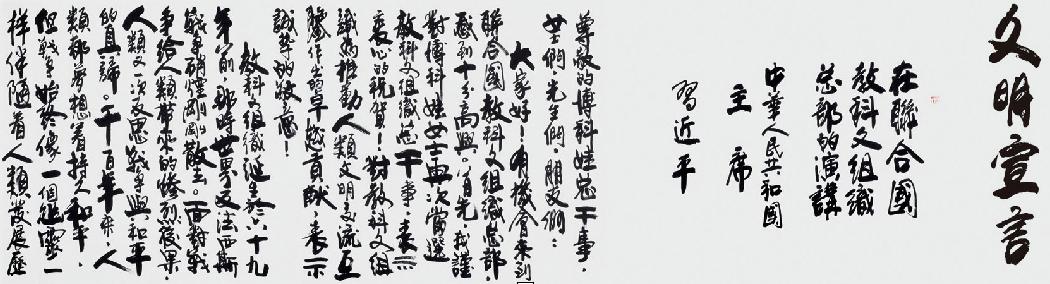 文明宣言
在聯合國
教科文組織
总部的演講
中華人民共和國
主席
習近平
尊敬的博科娃总干事，
女士們，先生們，朋友們：
大家好！有機會來到
聯合國教科文組織总部，
感到十分高興。首先，我謹
對博科娃女士再次當選
教科文組織总干事，表示
衷心的祝賀！對教科文組
織為推動人類文明交流互
鑒作出的卓越貢獻，表示
誠摯的敬意！
教科文組織誕生於六十九
年前，那時世界反法西斯
戰爭硝煙剛剛散去。面對戰
爭給人類帶來的慘烈後果，
人類又一次反思戰爭與和平
的真諦。千百年來，人
類都夢想着持久和平，
但戰爭始終像一個幽靈一
樣伴隨着人類發展歷